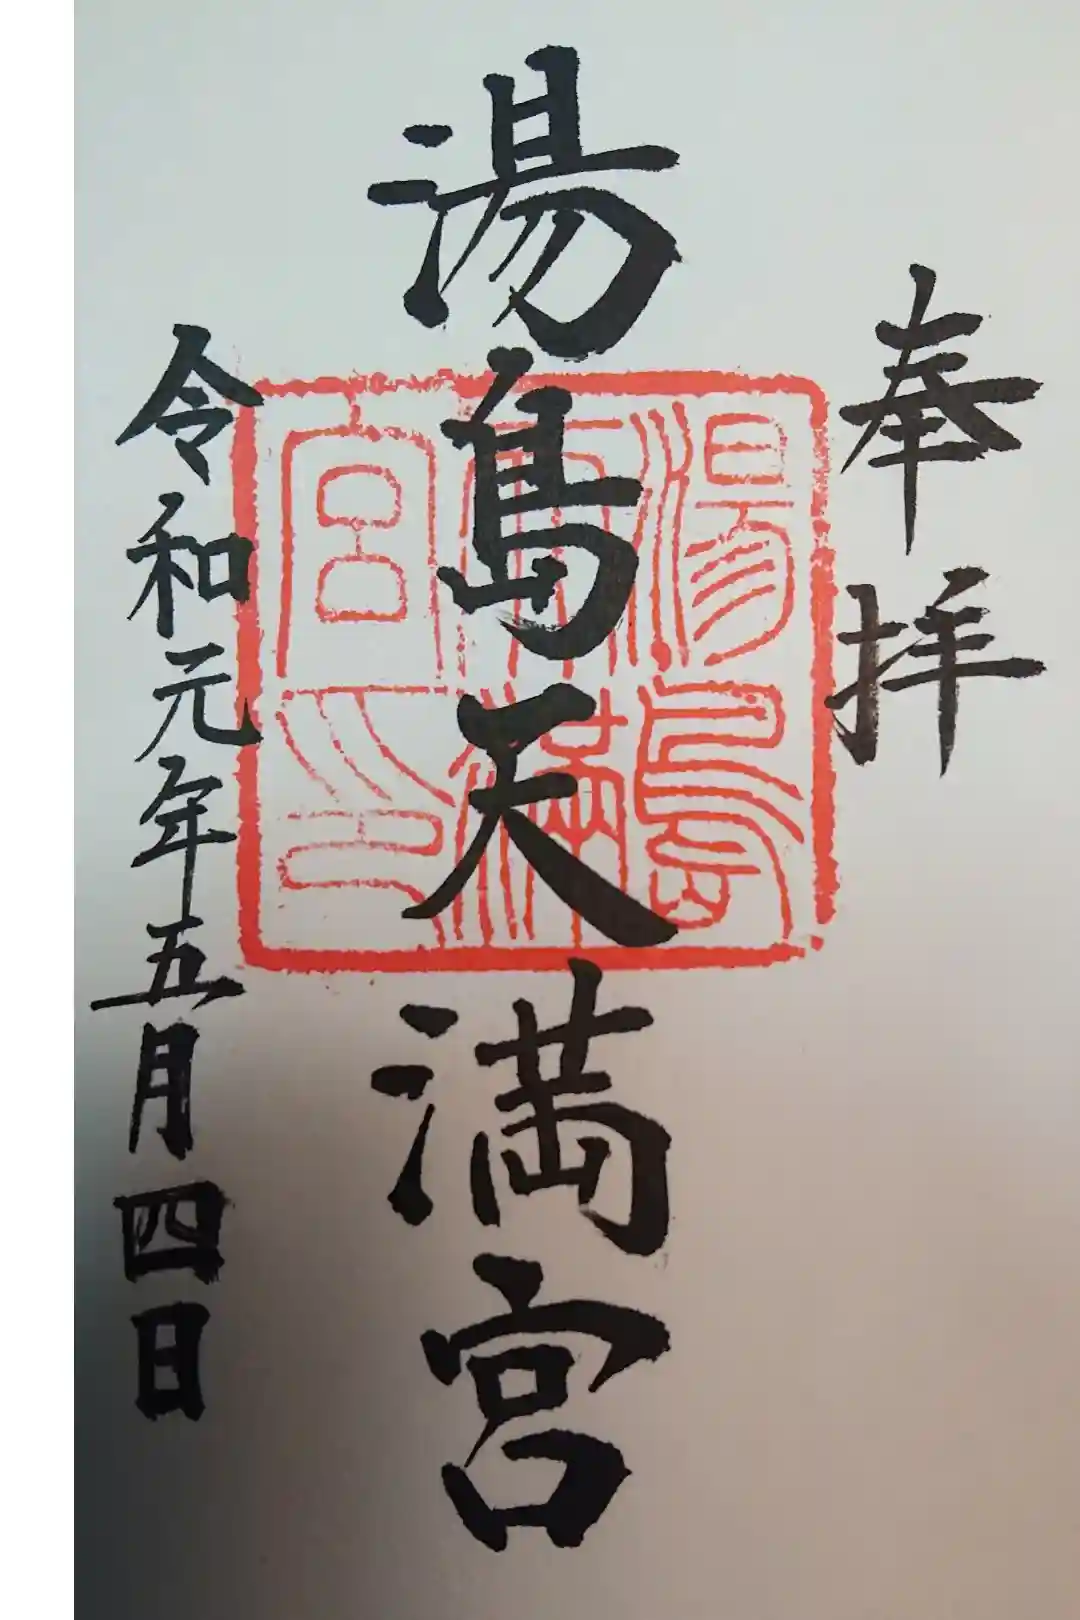 奉拝
湯島天満宮
湯島
天満
宮印
令和元年五月四日